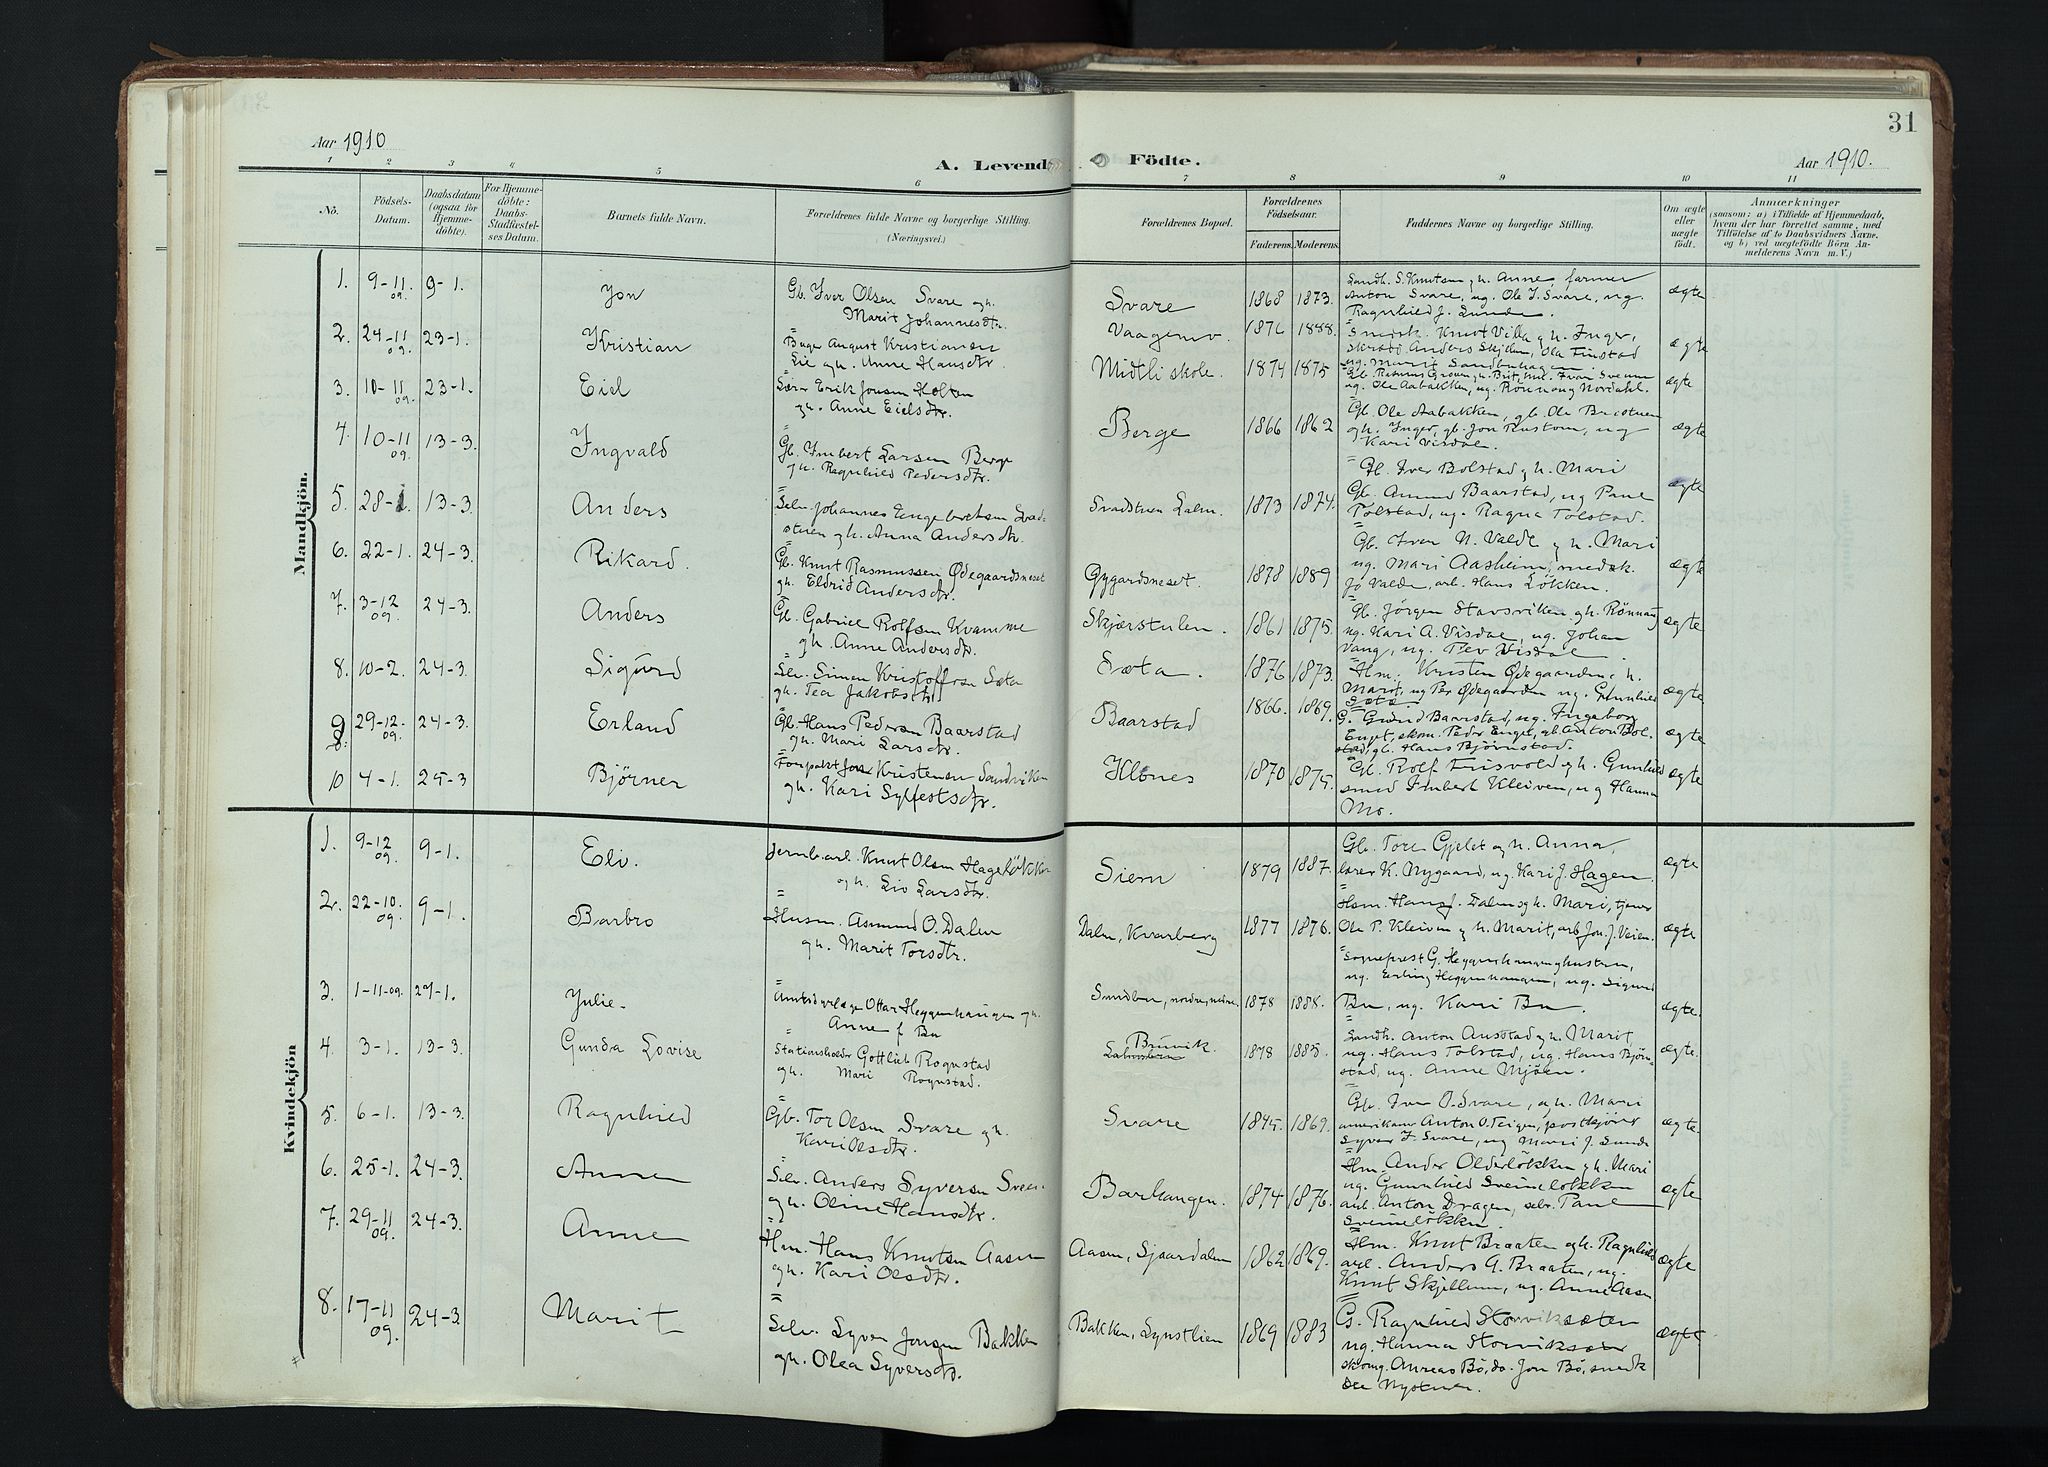 31
Aar 1910
A. Levende Födte.
Aar 1910.
1 2 3 4 5 6 7 8 9 10 11
No.
Födsels-Datum.
Daabsdatum (ogsaa for Hjemme-döbte).
For Hjemme-döbte: Daabs-Stadfæstel-ses Datum.
Barnets fulde Navn.
Forældrenes fulde Navne og borgerlige Stilling.
(Næringsvei.)
Forældrenes Bopæl.
Forældrenes Födselsaar.
Faderens. Moderens.
Faddernes Navne og borgerlige Stilling.
Om ægte eller uægte födt.
Anmærkninger
(saasom: a) i Tilfælde af Hjemmedaab,
hvem der har forrettet samme, med
Tilföielse af to Daabsvidners Navne.
og b) ved uægtefödte Börn An-
melderens Navn m. V.)
Mandkjön.
1. 9-11 09. 9-1. Jon
Gb. Iver Olsen Svare og h.
Marit Johannesdtr.
Svare 1868 1873.
Landh. S. Knutsen og h. Anne, farmer
Anton Svare, ug. Ole I. Svare, ug.
Ragnhild J. Sunde.
ægte
2. 24-11 09. 23-1. Kristian
August Kristiansen
Lie og h. Anne Hansdtr.
Vaagemo. 1876 1888.
Snedk. Knut Villa og h. Inger,
Anders Skjellum, Ola Finstad
ug. Marit Sandbuhagen.
ægte
3. 10-11 09. 23-1. Eid
Lærer Erik Jonsen Holten
og h. Anne Eidsdtr.
Midtli skole. 1874 1875
ug. Ole Aabakken, ug. Rönnaug Nordahl.
ægte
4. 10-11 09. 13-3. Ingvald
Gb. Imbert Larsen Berge
og h. Ragnhild Pedersdtr.
Berge 1866 1862
Gb. Ole Aabakken, gb. Ole Bræstuen
og h. Inger, gb. Jon Rustom, ug
Kari Visdal.
ægte
5. 28-1. 13-3. Anders
Selv. Johannes Engebretsen Svad-
stuen og h. Anna Andersdtr.
Svadstuen Lalm. 1873 1874.
Gb. Iver Bolstad og h. Mari
Gb. Amund Baarstad, ug Paul
Tolstad, ug. Ragna Tolstad.
ægte
6. 22-1. 24-3. Rikard.
Gb. Knut Rasmussen Ødegaardsneset
og h. Eldrid Andersdtr.
Gygardsneset. 1878 1889
Gb. Iver N. Valde og h. Mari
ug. Mari Aasheim, snedk.
Jo Valde, arb. Hans Løkken.
ægte
7. 3-12 09. 24-3. Anders
Gb. Gabriel Rolfsen Kvamme
og h. Anne Andersdtr.
Skjærstulen. 1861 1875.
Gb. Jörgen Stavsviken og h. Rönnaug
ug. Kari A. Visdal, ug. Johan
Vang, ug. Per Visdal.
ægte
8. 10-2. 24-3. Sigurd
Selv. Simen Kristoffersen Sæta
og h. Tea Jakobsdtr
Sæta. 1876 1873.
Hm. Kristen Ødegaarden, h.
Marit, ug Per Ødegaarden ug. Gunhild
Sæta.
ægte
9 29-12. 09. 24-3. Erland
Gb. Hans Pedersen Baarstad
og h. Mari Larsdtr.
Baarstad 1866. 1869.
G. Gudrid Baarstad, ug. Ingeborg
Enget, skom. Peder Enget, gb. Anton Bol-
stad, gb. Hans Bjørnstad.
ægte
10 4-1. 25-3 Bjørner
Forpakt Jon Kristensen Sandviken
og h. Kari Sylfestsdtr.
Klones 1870 1875.
Gb. Rolf Frisvold og h. Gunhild
smed Imbert Kleiven, ug Hanna
Mo.
ægte
Kvindekjön
1. 9-12 09. 9-1. Eli.
Jernb.arb. Knut Olsen Hageløkken
og h. Liv Larsdtr.
Siem 1879 1887.
Gb. Tore Gjelet og h. Anna,
lærer K. Nygaard, ug. Kari J. Hagen.
ægte
2. 22-10. 09. 9-1. Barbro
Husm. Asmund O. Dalen
og h. Marit Torsdtr.
Dalen, Kvarberg 1877 1876.
Hsm. Hans J. Dalen og h. Mari, tjener
Ole P. Kleiven og h. Marit, arb. Jon J. Veien.
ægte
3. 1-11-09. 27-1. Julie.
Ottar Heggenhaugen og h.
Anne f Bu
Sandbu, nordre, 1878 1888.
Sogneprest G. Heggenhaugen og hustru,
ug. Erling Heggenhaugen, ug. Sigurd
Bu, ug. Kari Bu.
ægte.
4. 3-1. 13-3. Gunda Lovise
Stationsholder Gottlieb Rognstad
og h. Mari Rognstad.
Brúvik. 1878 1885.
Landh. Anton Aunstad og h. Marit,
ug. Hans Tolstad, ug. Hans Bjørn-
stad, ug. Anne Mjöen.
ægte.
5. 6-1. 13-3. Ragnhild
Gb. Tor Olsen Svare og h.
Kari Olsdtr.
Svare 1845. 1869.
Gb. Iver O. Svare, og h. Mari
amerikaner Anton O. Teigen, postkjører
Syver I. Svare, ug Mari J. Sunde
ægte.
6. 25-1. 24-3. Anne
Selv. Anders Syversen Sveen
og h. Oline Hansdtr.
Barhaugen. 1874 1876.
Hm. Anders Olderløkken og h. Mari
ug. Gunnhild Sveineløkken
arb. Anton Dragen, selv. Paul
Sveineløkken.
ægte
7. 29-11 09. 24-3. Anne
Hm. Hans Knutsen Aasen
og h. Kari Olsdtr.
Aasen, Sjaardalen 1862 1869.
Hm. Knut Braaten og h. Ragnhild
arb. Anders A. Braaten, ug.
Knut Skjellum, ug. Anne Aasen
ægte
8. 17-11 09. 24-3 Marit
Selv. Syver Jonsen Bakken
og h. Olea Syversdtr.
Bakken, Synstlien 1869 1883
G. Ragnhild Storviksæten
ug. Hanna Storviksæter
skomg. Andreas Bø, do. Jon Bø, snedk
Nystuen.
ægte